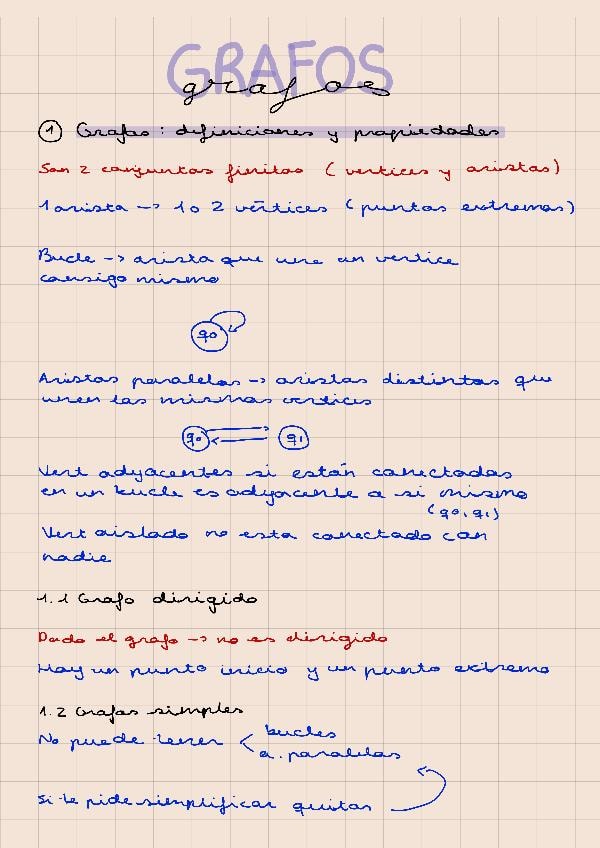 GRAFOS
grafos
① Grafos: definiciones y propiedades
Son 2 conjuntos finitos (vertices y aristas)
1 arista -> 1 o 2 vértices (puntos extremos)
Bucle -> arista que une un vertice
consigo mismo
q0
Aristas paralelas -> aristas distintas que
unen los mismos vertices
q0 q1
Vert adyacentes si están conectados
en un bucle es adyacente a si mismo
(q0, q1)
Vert aislado no esta conectado con
nadie
1.1 Grafo dirigido
Dado el grafo -> no es dirigido
Hay un punto inicio y un punto extremo
1.2 Grafos simples
No puede tener < bucles
a. paralelas
Si te pide simplificar quitas